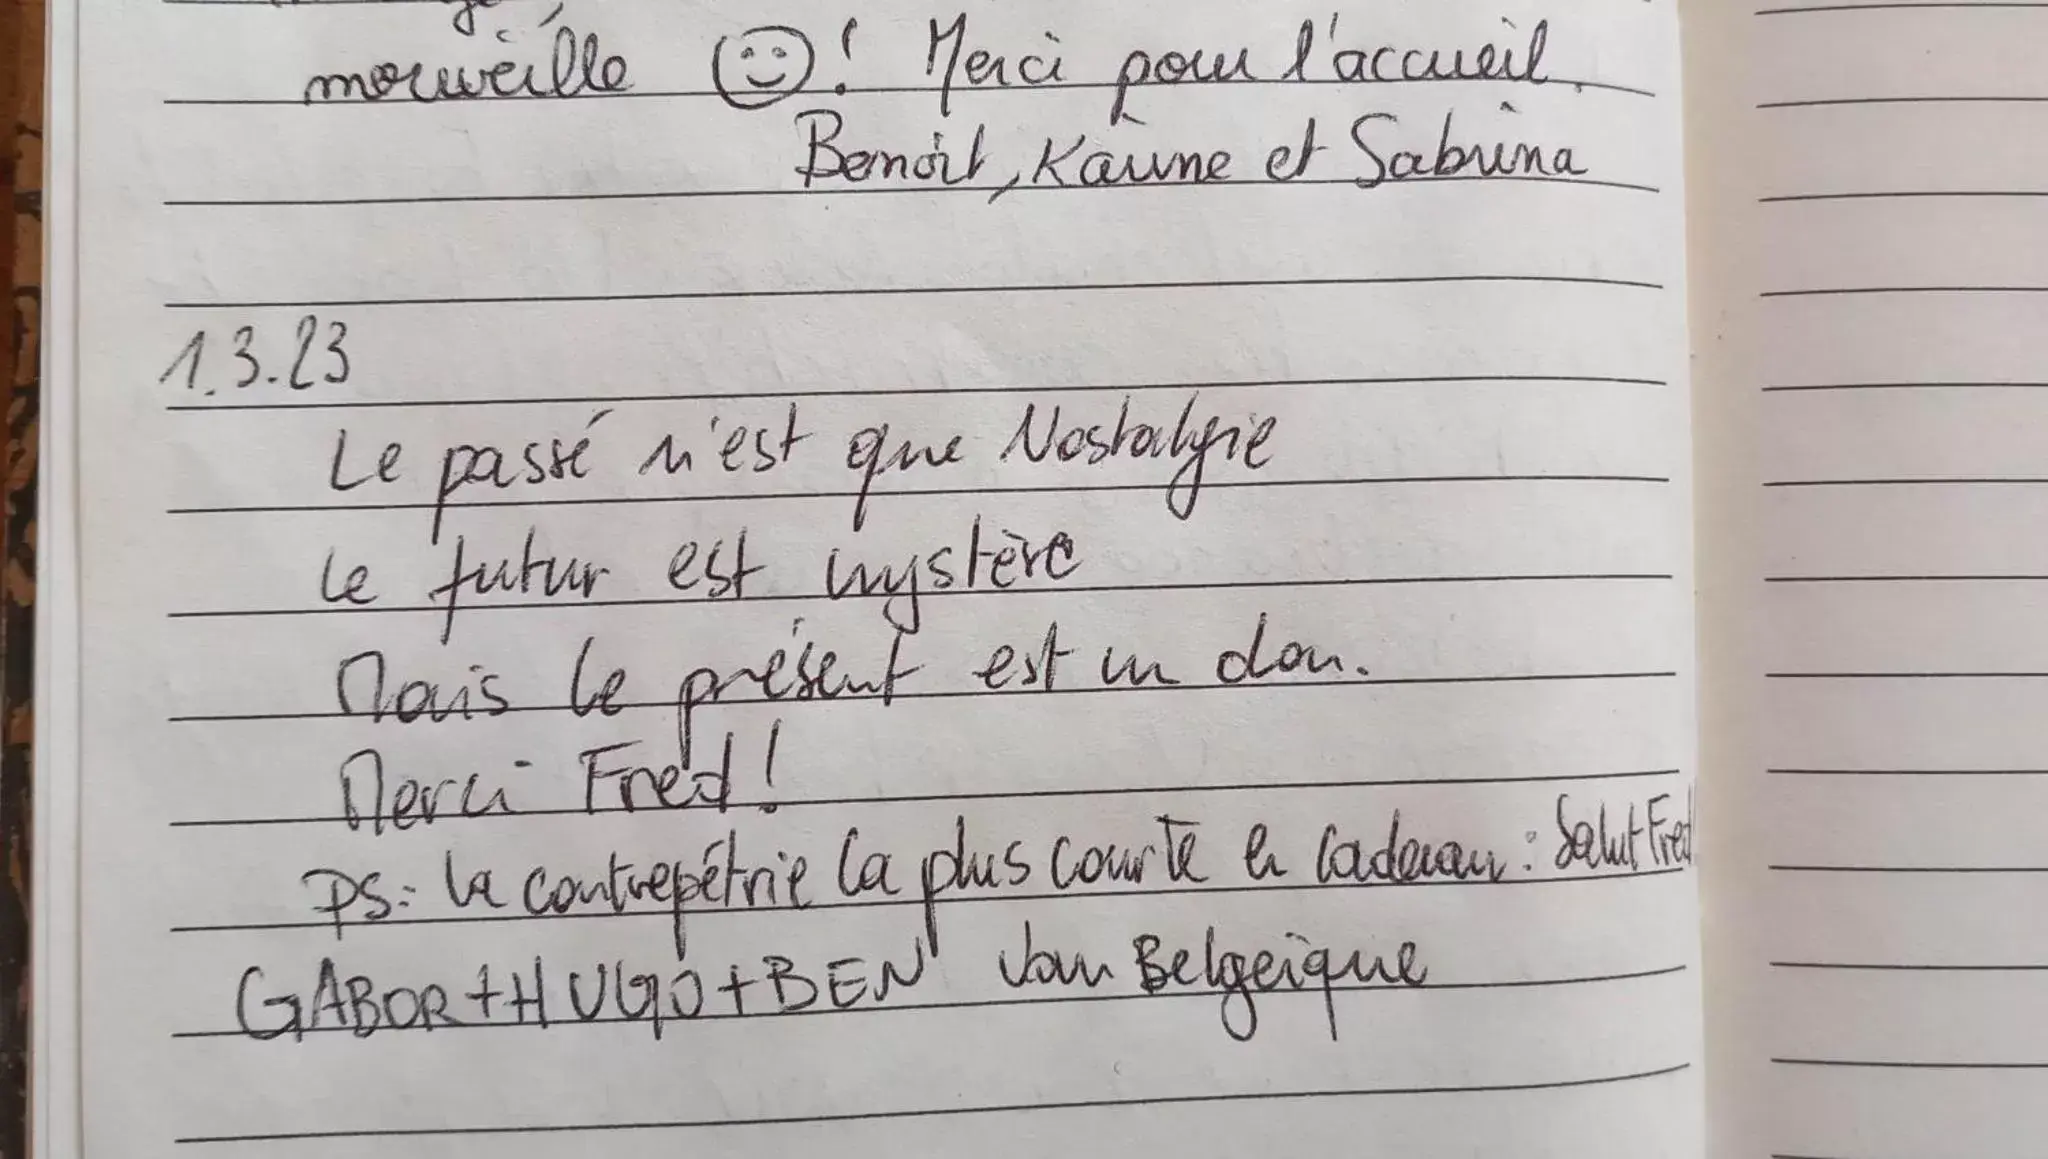 merveille ! Merci pour l'accueil.
Benoît, Karine et Sabrina
1.3.23
Le passé n'est que Nostalgie
Le futur est mystère
Mais le présent est un don.
Merci Fred!
PS: la contrepétrie la plus courte en cadeau : Salut Fred!
GABOR + HUGO + BEN van Belgeique